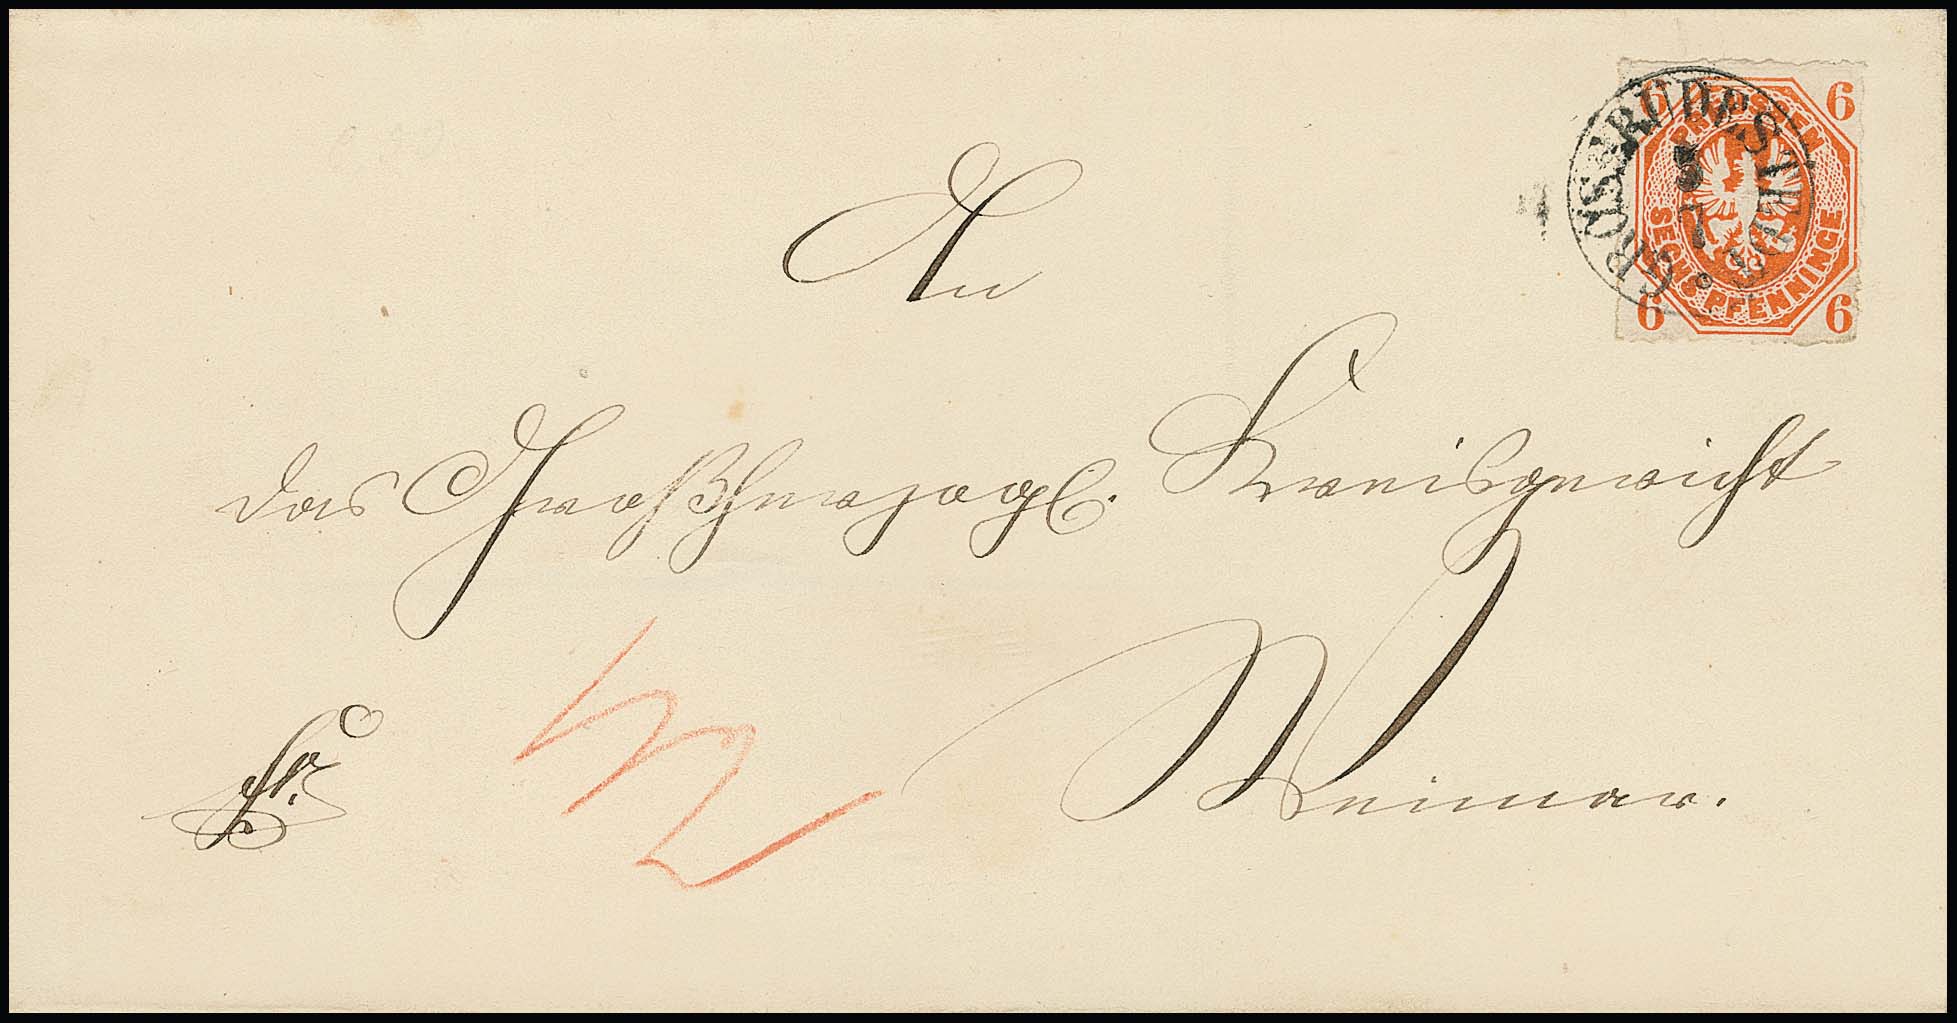 6 6
PREUSSEN
SECHS PFENNINGE
6 6
GROSSRUDESTEDT
7
An
das Großherzogl. Kreisgericht
Weimar.
fr.